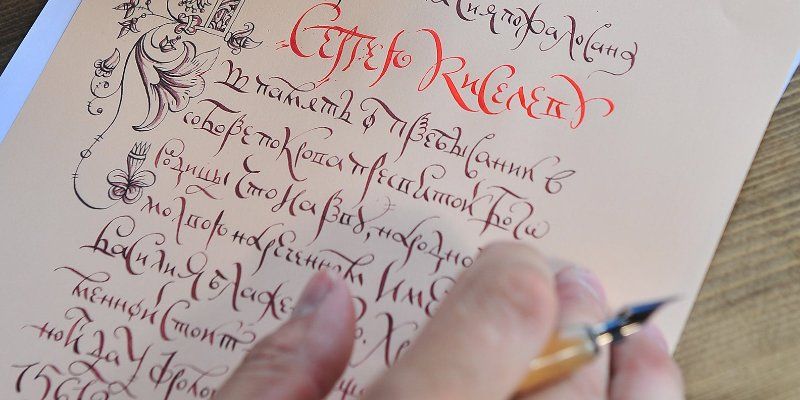 сия пожалована
Сергею Киселеву
В память о пребывании в
соборе покрова пресвятой Бого
родицы Что на рву, народно
молвою нареченном Име
Василия Блажен
менный стоит
ной да у Фроло